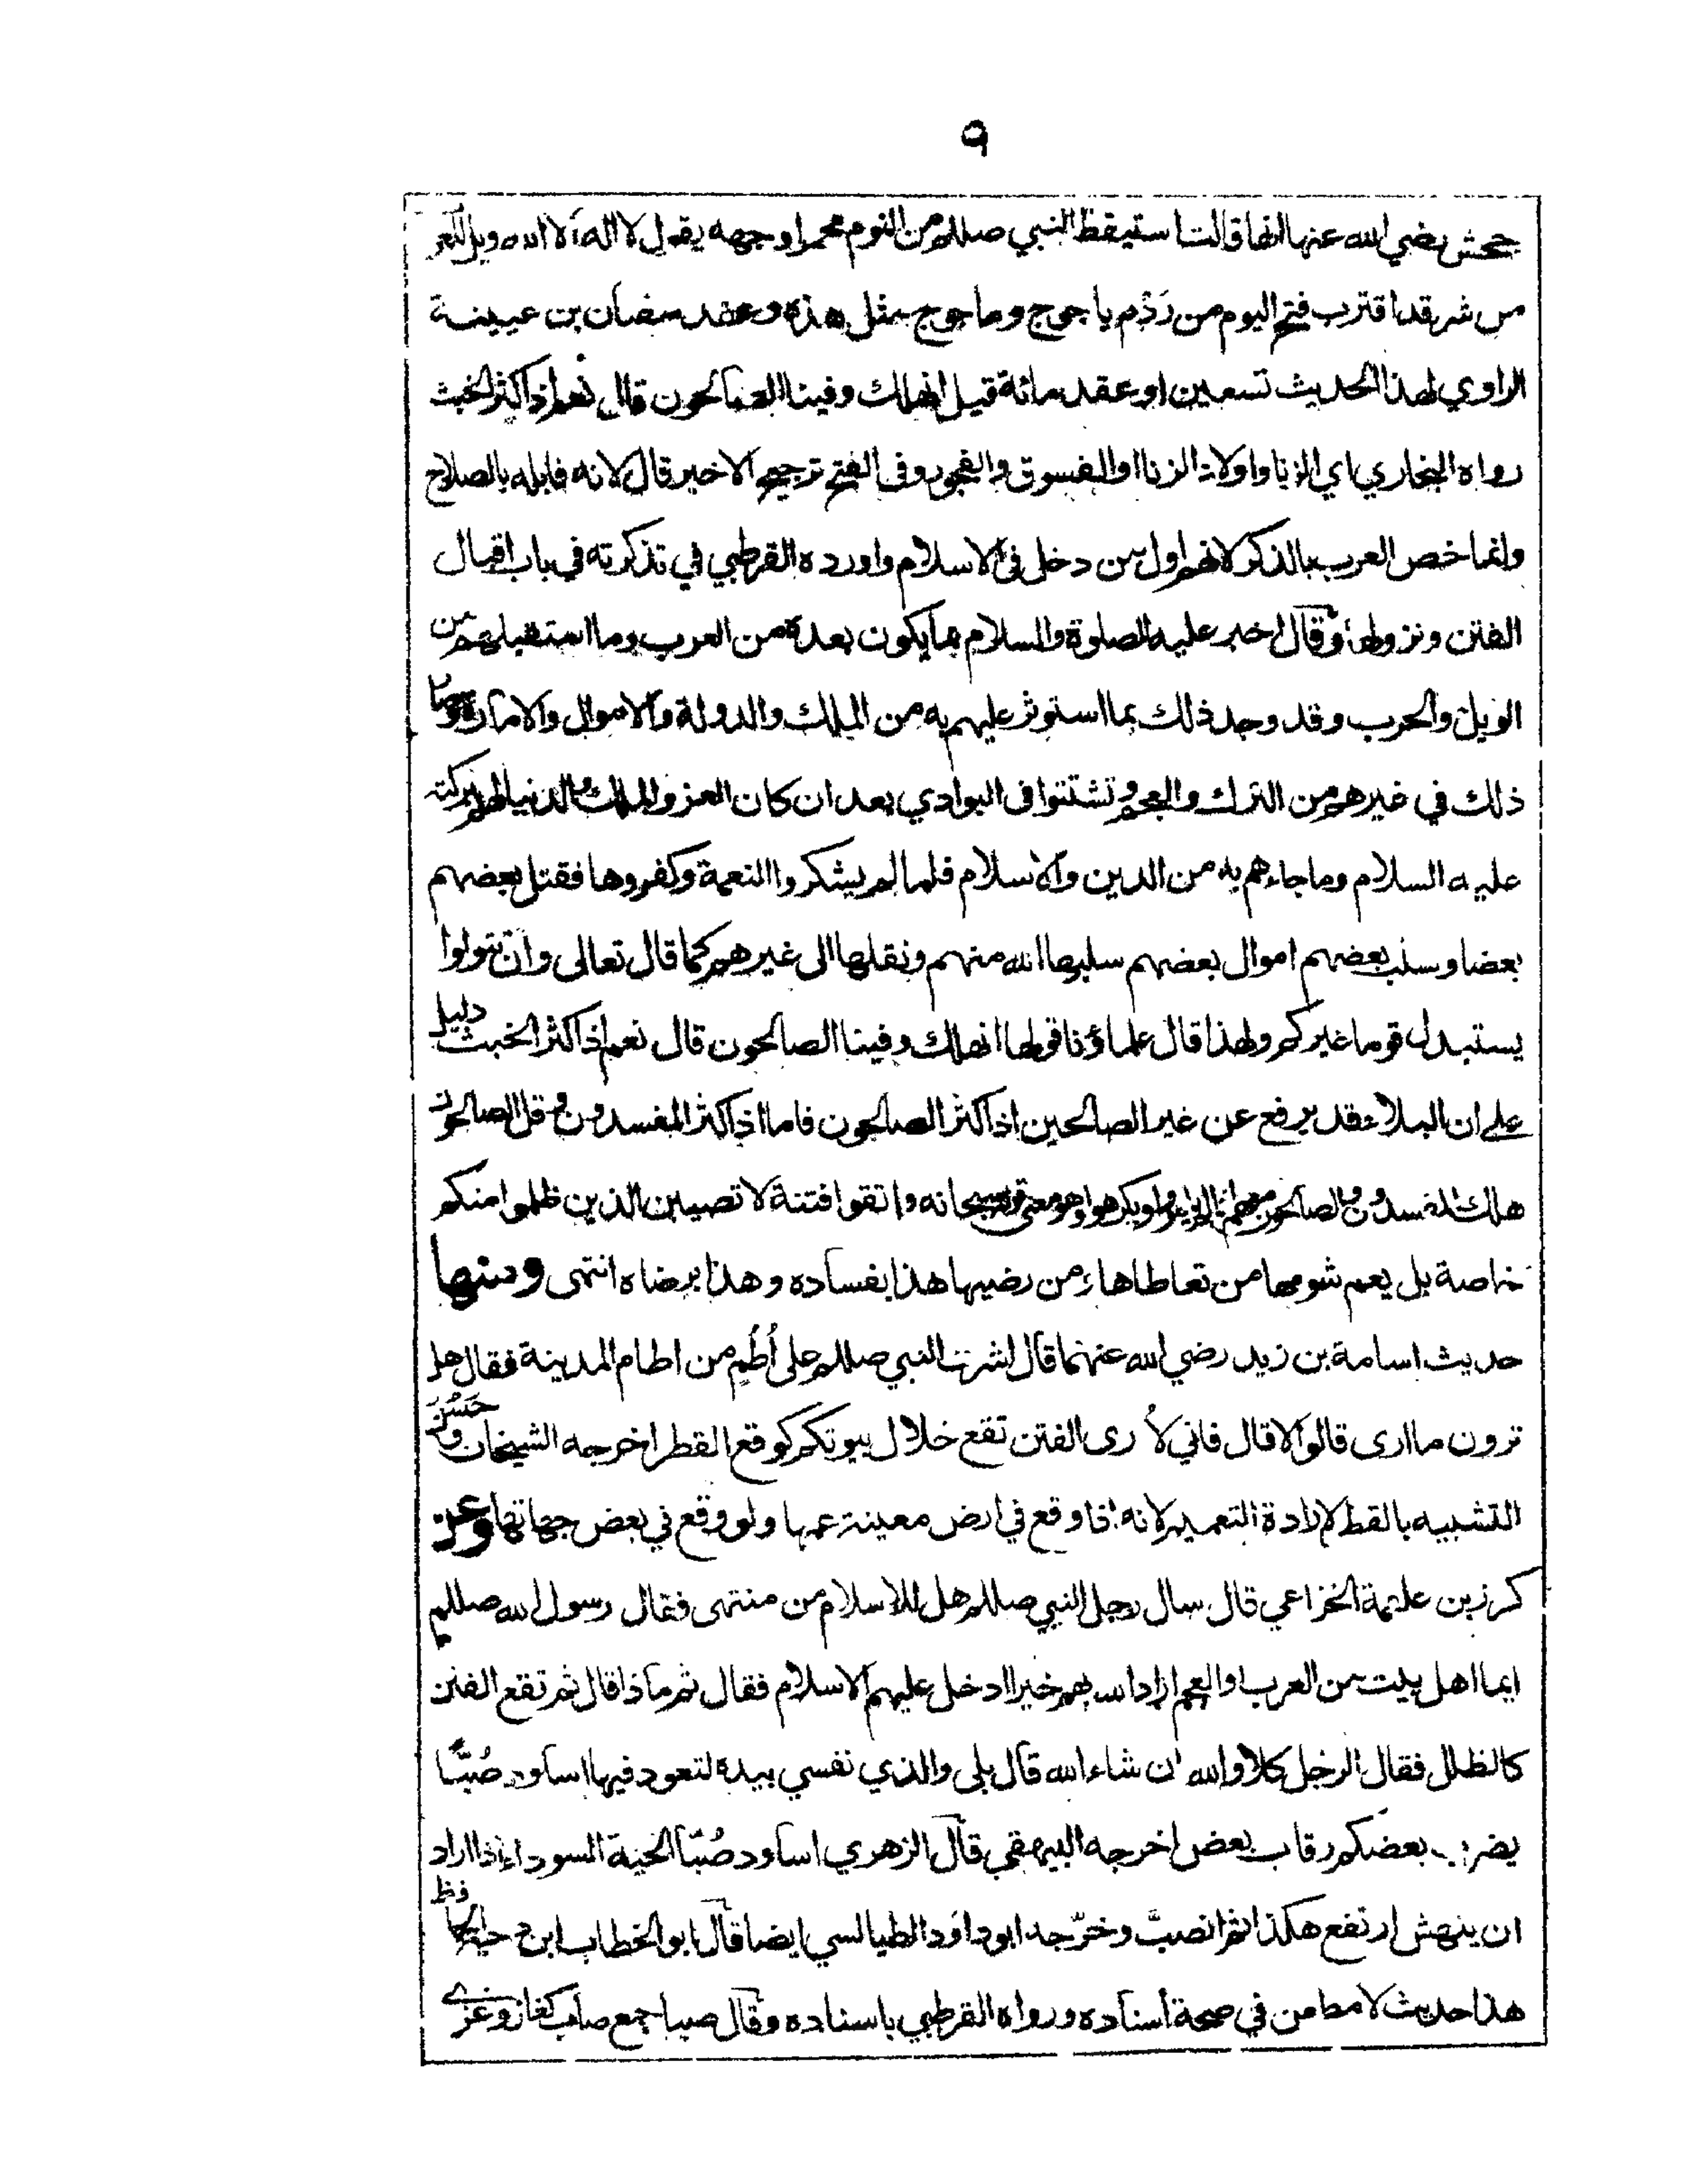 ٩
جحش رضي الله عنها انها قالت استيقظ النبي صللم من النوم محمرا وجهه يقول لا اله الا الله ويل للعرب
من شر قد اقترب فتح اليوم من رَدْم ياجوج وماجوج مثل هذه وعقد سفيان بن عيينة
الراوي لهذا الحديث تسعين او عقد مائة قيل انهلك وفينا الصالحون قال نعم اذا كثر الخبث
رواه البخاري اي الزنا واولاد الزنا او الفسوق والفجور وفي الفتح ترجيح الاخير قال لانه قابله بالصلاح
وانما خص العرب بالذكر لانهم اول من دخل في الاسلام واورده القرطبي في تذكرته في باب اقبال
الفتن ونزولها وقال اخبر عليه الصلوة والسلام بما يكون بعده من العرب وما استقبلهم من
الويل والحرب وقد وجد ذلك بما استوثر عليهم به من الملك والدولة والاموال والامارة وصار
ذلك في غيرهم من الترك والعجم وتشتتوا في البوادي بعد ان كان العز والملك والدنيا لهم ببركته
عليه السلام وما جاءهم به من الدين والاسلام فلما لم يشكروا النعمة وكفروها فقتل بعضهم
بعضا وسلب بعضهم اموال بعضهم سلبها الله منهم ونقلها الى غيرهم كما قال تعالى وان تتولوا
يستبدل قوما غيركم ولهذا قال علماؤنا قولها انهلك وفينا الصالحون قال نعم اذا كثر الخبث دليل
على ان البلاء قد يرفع عن غير الصالحين اذا كثر الصالحون فاما اذا كثر المفسدون وقل الصالحون
هلك المفسدون والصالحون معهم اذا لم يأمروا ويكرهوا وهو معنى قوله سبحانه واتقوا فتنة لا تصيبن الذين ظلموا منكم
خاصة بل يعم شومها من تعاطاها ومن رضيها هذا بفساده وهذا برضاه انتهى ومنها
حديث اسامة بن زيد رضي الله عنهما قال اشرف النبي صللم على أُطُم من اطام المدينة فقال هل
ترون ما ارى قالوا لا قال فاني لأرى الفتن تقع خلال بيوتكم كوقع القطر اخرجه الشيخان وحَسُنَ
التشبيه بالقطر لارادة التعميم لانه اذا وقع في ارض معينة عمها ولو وقع في بعض جهاتها وعن
كرز بن علقمة الخزاعي قال سال رجل النبي صللم هل للاسلام من منتهى فقال رسول الله صللم
ايما اهل بيت من العرب او العجم اراد الله بهم خيرا ادخل عليهم الاسلام فقال ثم ماذا قال ثم تقع الفتن
كالظلل فقال الرجل كلا والله ان شاء الله قال بلى والذي نفسي بيده لتعود فيها اساود صُبًّا
يضرب بعضكم رقاب بعض اخرجه البيهقي قال الزهري اساود صُبّا الحية السوداء اذا اراد
ان ينهش ارتفع هكذا ثم انصبَّ وخرّجه ابو داود الطيالسي ايضا قال ابو الخطاب ابن دحية الحافظ
هذا حديث لا مطا من في صحة أسناده ورواه القرطبي باسناده وقال صبا جمع صاب كغاز وغزى